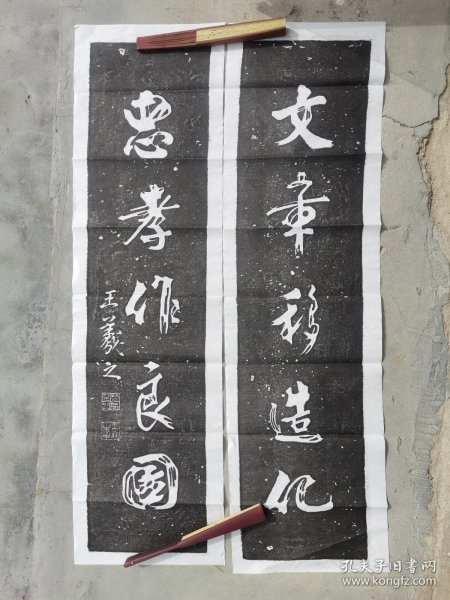 文章移造化
忠孝作良國
王羲之
孔夫子旧书网
www.kongfz.com